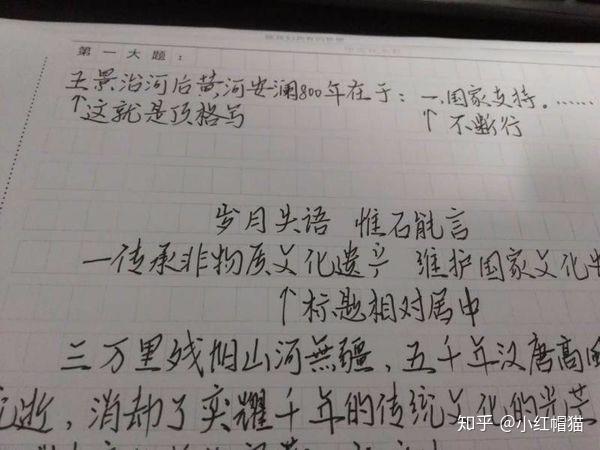 第一大题：
王景治河后黄河安澜800年在于：一、国家支持。……
↑这就是顶格写
↑不断行
岁月失语 惟石能言
一传承非物质文化遗产 维护国家文化
↑标题相对居中
三万里残旧山河無疆，五千年汉唐高
逝，消却了荣耀千年的传统文化的光芒
知乎 @小红帽猫